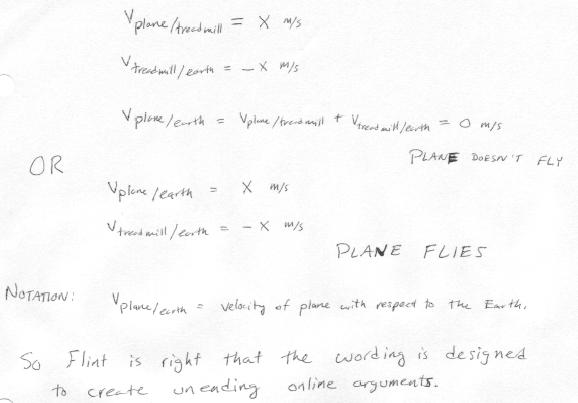 V plane/treadmill = X m/s
V treadmill/earth = -X m/s
V plane/earth = V plane/treadmill + V treadmill/earth = 0 m/s
PLANE DOESN'T FLY
OR
V plane/earth = X m/s
V treadmill/earth = -X m/s
PLANE FLIES
NOTATION: V plane/earth = velocity of plane with respect to the Earth.
So Flint is right that the wording is designed
to create unending online arguments.